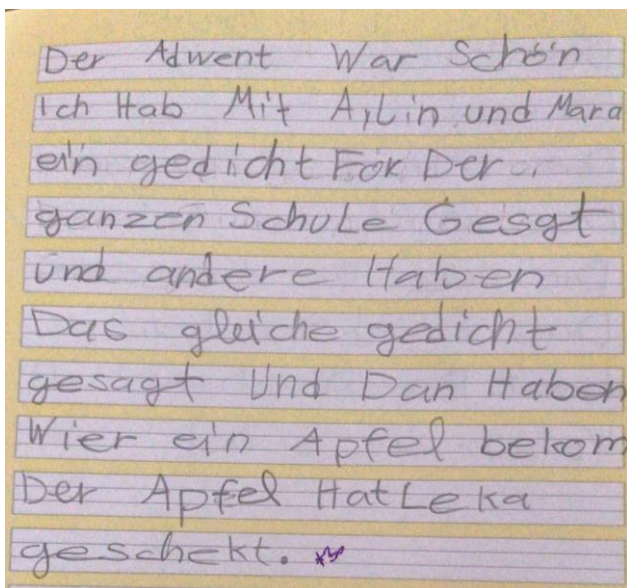 Der Adwent War Schön
Ich Hab Mit Aylin und Mara
ein gedicht For Der
ganzen Schule Gesgt
und andere Haben
Das gleiche gedicht
gesagt Und Dan Haben
Wier ein Apfel bekom
Der Apfel Hat Leka
geschekt.